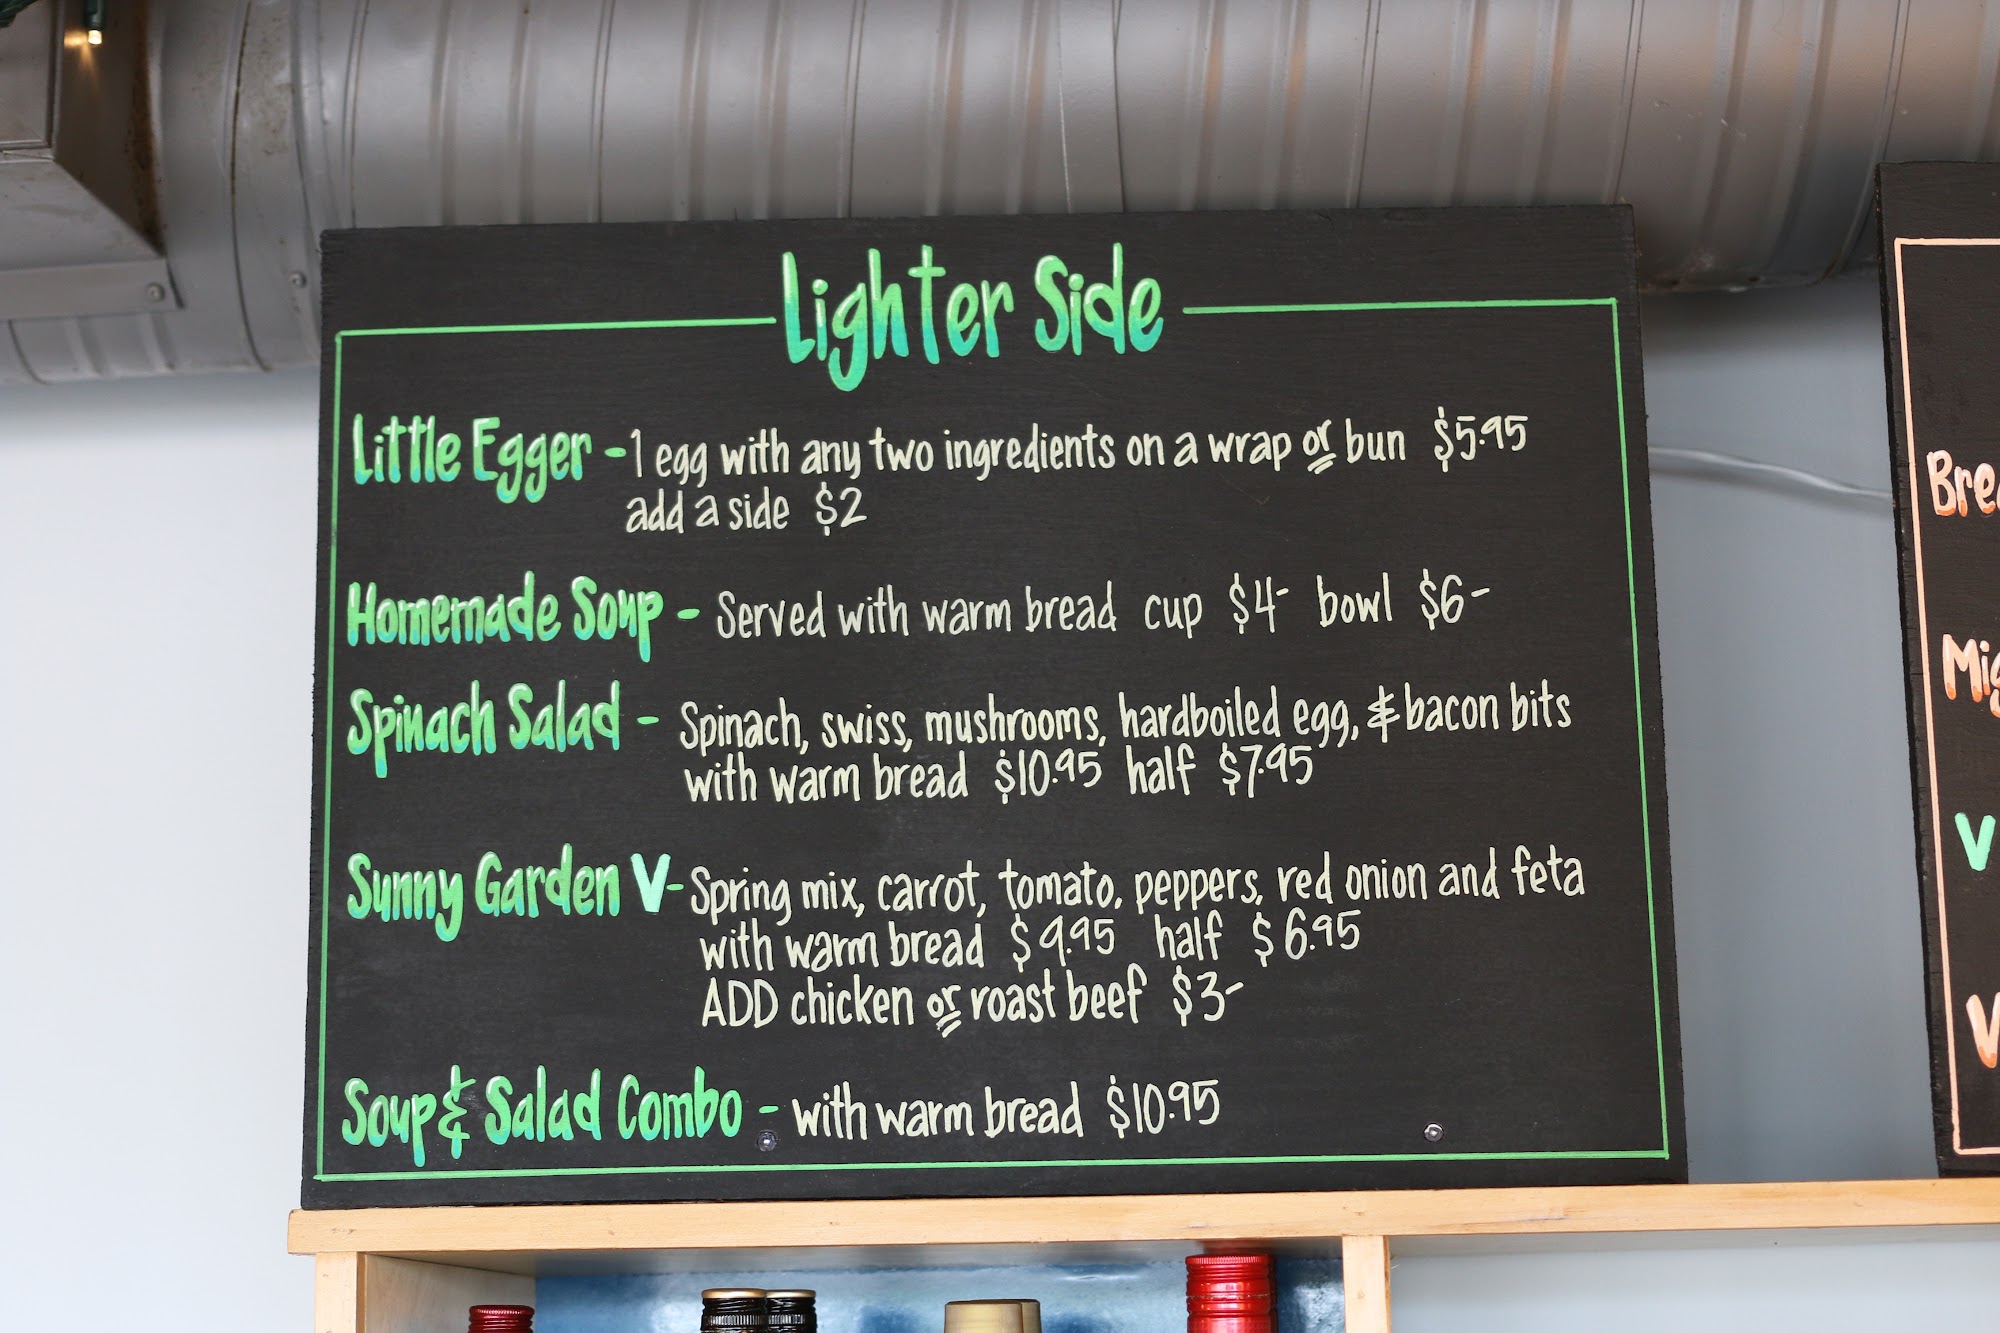 Lighter Side
Little Egger - 1 egg with any two ingredients on a wrap or bun $5.95
add a side $2
Homemade Soup - Served with warm bread cup $4- bowl $6-
Spinach Salad - Spinach, swiss, mushrooms, hardboiled egg, & bacon bits
with warm bread $10.95 half $7.95
Sunny Garden V - Spring mix, carrot, tomato, peppers, red onion and feta
with warm bread $9.95 half $6.95
ADD chicken or roast beef $3-
Soup & Salad Combo - with warm bread $10.95
Bre
Mig
V
V